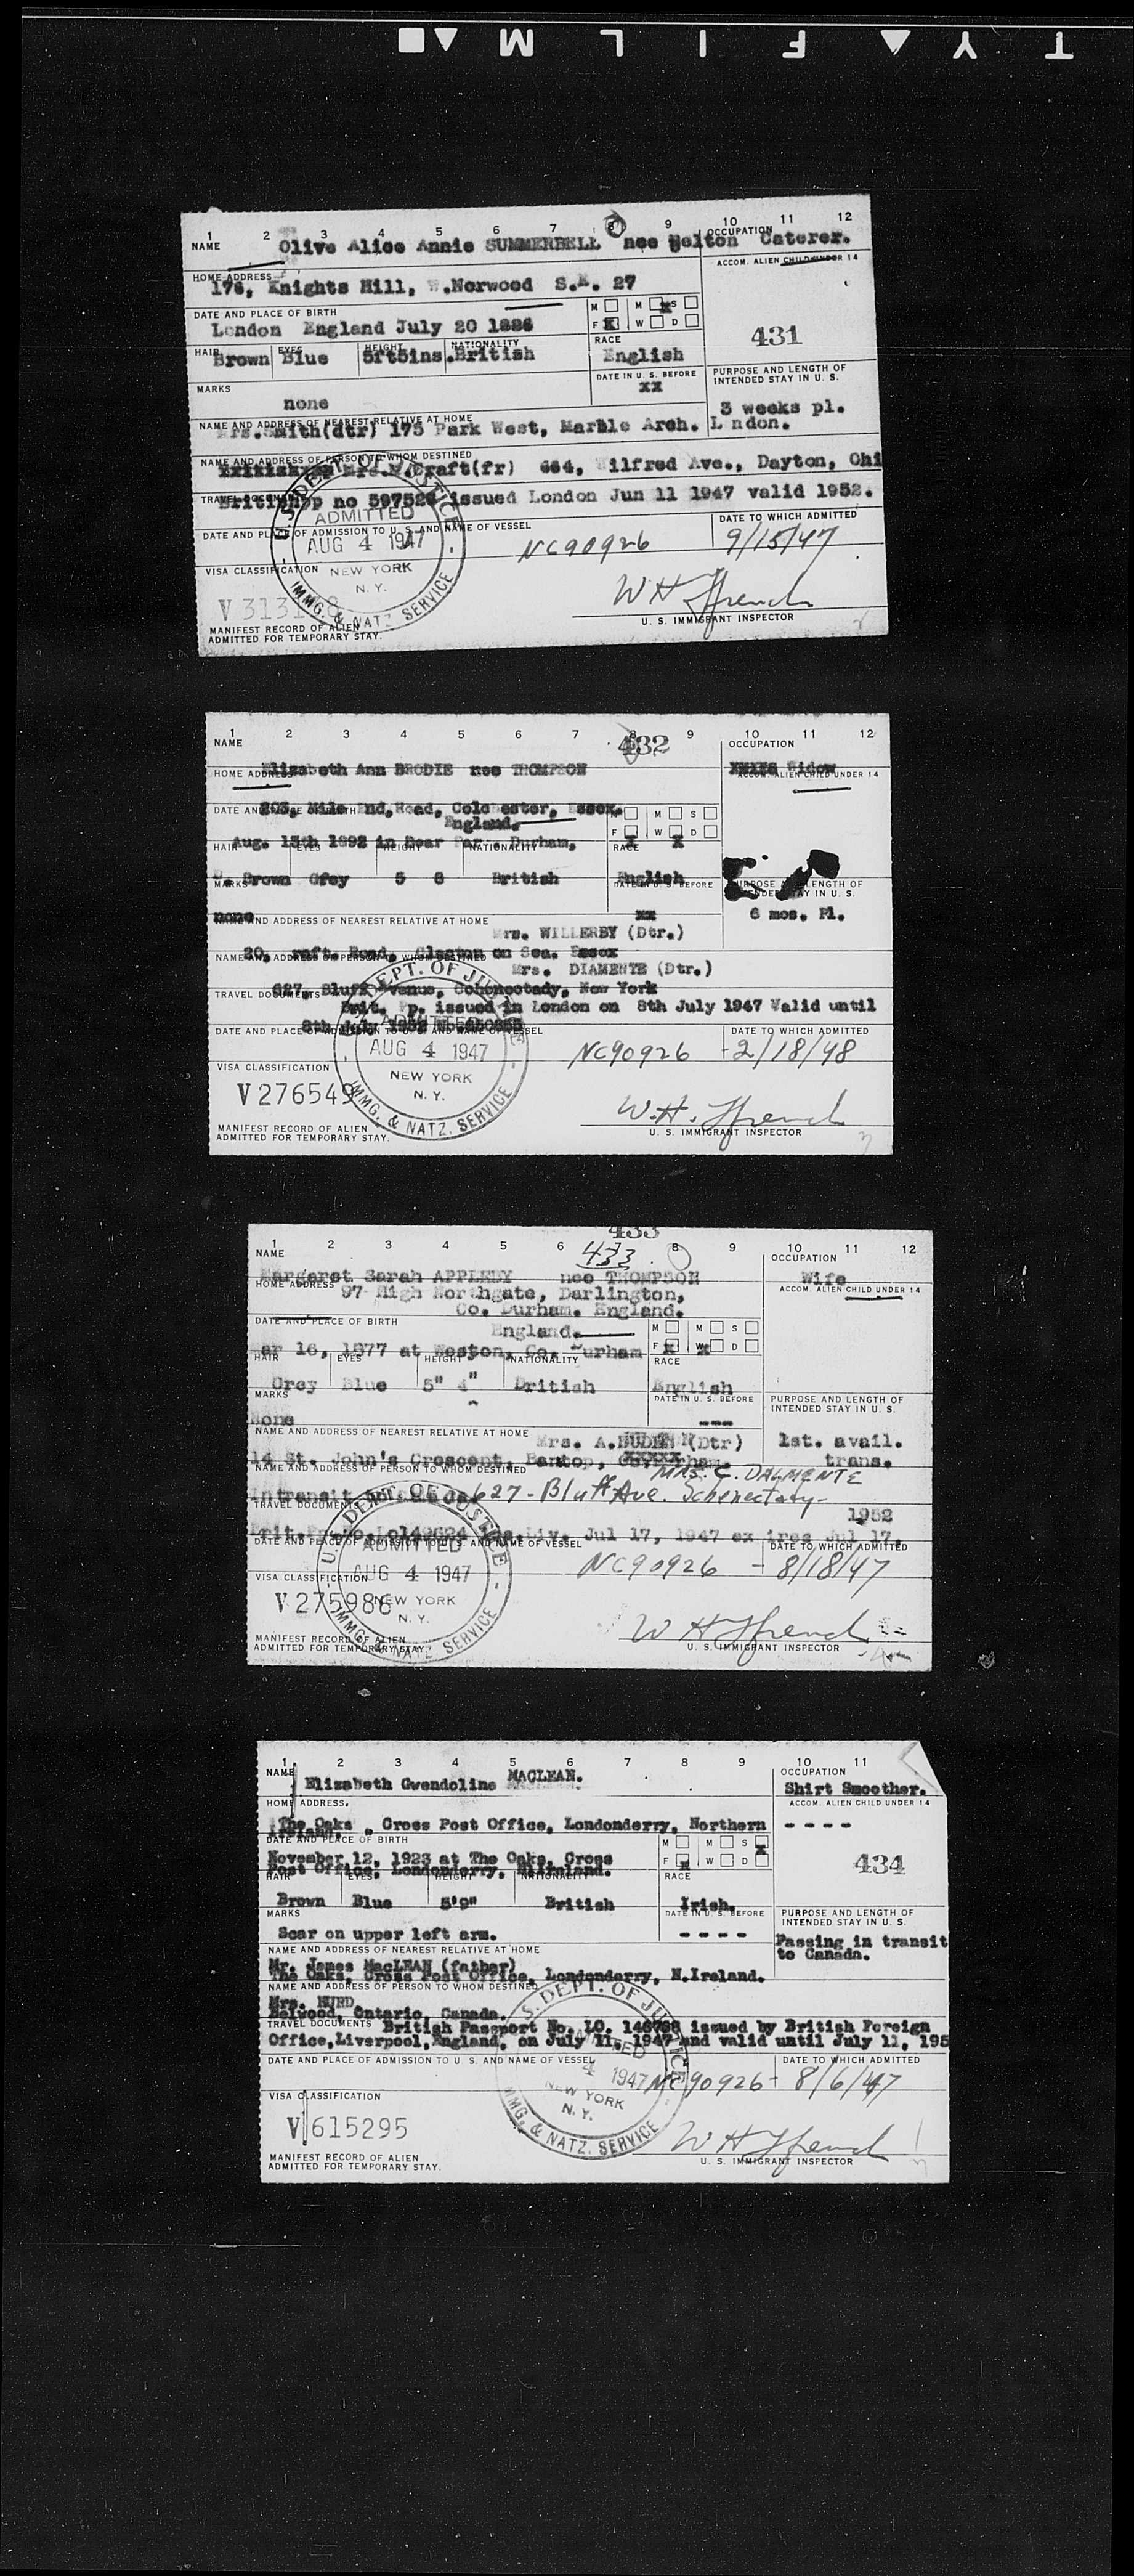 TYFILM
1 2 3 4 5 6 7 8 9 10 11 12
NAME OCCUPATION
Olive Alice Annie SUMMERBELL nee Caterer.
HOME ADDRESS ACCOM. ALIEN CHILD UNDER 14
176, Knights Hill, W.Norwood S.E. 27
DATE AND PLACE OF BIRTH M M S
London England July 20 1886 F X W D
431
HAIR EYES HEIGHT NATIONALITY RACE
Brown Blue 5ft5ins. British English
MARKS DATE IN U. S. BEFORE PURPOSE AND LENGTH OF INTENDED STAY IN U. S.
none xx 3 weeks pl.
NAME AND ADDRESS OF NEAREST RELATIVE AT HOME
Mrs.Smith(dtr) 175 Park West, Marble Arch. L ndon.
NAME AND ADDRESS OF PERSON TO WHOM DESTINED
Craft(fr) Wilfred Ave., Dayton, Ohi
TRAVEL DOCUMENTS
British pp no issued London Jun 11 1947 valid 1952.
DATE AND PLACE OF ADMISSION TO U. S. AND NAME OF VESSEL DATE TO WHICH ADMITTED
NC90926 9/15/47
U.S. DEPT. OF JUSTICE
ADMITTED
AUG 4 1947
NEW YORK
N. Y.
IMMG. & NATZ. SERVICE
VISA CLASSIFICATION
W H Ffrench
U. S. IMMIGRANT INSPECTOR
MANIFEST RECORD OF ALIEN
ADMITTED FOR TEMPORARY STAY.
1 2 3 4 5 6 7 8 9 10 11 12
432
NAME OCCUPATION
Elizabeth Ann BRODIE nee THOMPSON Widow
HOME ADDRESS ACCOM. ALIEN CHILD UNDER 14
203, Mile End, Road, Colchester, Essex.
England.
DATE AND PLACE OF BIRTH M M S
F W D
Aug. 13th 1892 in Durham,
HAIR EYES HEIGHT NATIONALITY RACE
Brown Grey 5 8 British English
MARKS DATE IN U. S. BEFORE PURPOSE AND LENGTH OF INTENDED STAY IN U. S.
none xx 6 mos. Pl.
NAME AND ADDRESS OF NEAREST RELATIVE AT HOME
Mrs. WILLERBY (Dtr.)
20, Road, Clacton on Sea. Essex
NAME AND ADDRESS OF PERSON TO WHOM DESTINED
Mrs. DIAMENTE (Dtr.)
627, Bluff Avenue, New York
TRAVEL DOCUMENTS
Brit. Pp. issued in London on 8th July 1947 Valid until
8th July 1952
DATE AND PLACE OF ADMISSION TO U. S. AND NAME OF VESSEL DATE TO WHICH ADMITTED
NC90926 - 2/18/48
U.S. DEPT. OF JUSTICE
ADMITTED
AUG 4 1947
NEW YORK
N. Y.
IMMG. & NATZ. SERVICE
VISA CLASSIFICATION
V276549
W.H. Ffrench
U. S. IMMIGRANT INSPECTOR
MANIFEST RECORD OF ALIEN
ADMITTED FOR TEMPORARY STAY.
433
1 2 3 4 5 6 433 8 9 10 11 12
NAME OCCUPATION
Margaret Sarah APPLEBY nee THOMPSON Wife
HOME ADDRESS ACCOM. ALIEN CHILD UNDER 14
97 High Northgate, Darlington,
Co. Durham. England.
DATE AND PLACE OF BIRTH M M S
England.
F W D
Mar 16, 1877 at Weston, Co. Durham
HAIR EYES HEIGHT NATIONALITY RACE
Grey Blue 5" 4" British English
MARKS DATE IN U. S. BEFORE PURPOSE AND LENGTH OF INTENDED STAY IN U. S.
None --- 1st. avail.
trans.
NAME AND ADDRESS OF NEAREST RELATIVE AT HOME Mrs. A. (Dtr)
14 St. John's Crescent,
NAME AND ADDRESS OF PERSON TO WHOM DESTINED MRS. C. DALMENTE
Intransit 627 - Bluff Ave. Schenectady -
TRAVEL DOCUMENTS 1952
Jul 17, 1947 ex ires Jul 17,
DATE AND PLACE OF ADMISSION TO U. S. AND NAME OF VESSEL DATE TO WHICH ADMITTED
NC90926 - 8/18/47
U.S. DEPT. OF JUSTICE
ADMITTED
AUG 4 1947
NEW YORK
N. Y.
IMMG. & NATZ. SERVICE
VISA CLASSIFICATION
V275986
W H Ffrench
U. S. IMMIGRANT INSPECTOR
MANIFEST RECORD OF ALIEN
ADMITTED FOR TEMPORARY STAY.
1 2 3 4 5 6 7 8 9 10 11
NAME OCCUPATION
Elizabeth Gwendoline MACLEAN. Shirt Smoother.
HOME ADDRESS. ACCOM. ALIEN CHILD UNDER 14
The Oaks , Cross Post Office, Londonderry, Northern ----
Ireland.
DATE AND PLACE OF BIRTH M M S
F W D
November 12, 1923 at The Oaks, Cross 434
Post Office, Londonderry, N.Ireland.
HAIR EYES HEIGHT NATIONALITY RACE
Brown Blue 5'9" British Irish.
MARKS DATE IN U. S. BEFORE PURPOSE AND LENGTH OF INTENDED STAY IN U. S.
Scar on upper left arm. ---- Passing in transit
to Canada.
NAME AND ADDRESS OF NEAREST RELATIVE AT HOME
Mr. James MacLEAN (father)
The Oaks, Cross Post Office, Londonderry, N.Ireland.
NAME AND ADDRESS OF PERSON TO WHOM DESTINED
Mrs. HURD
Belwood, Ontario, Canada.
TRAVEL DOCUMENTS British Passport No. LO. issued by British Foreign
Office,Liverpool,England, on July 11, 1947 and valid until July 11, 195
DATE AND PLACE OF ADMISSION TO U. S. AND NAME OF VESSEL DATE TO WHICH ADMITTED
NC90926 - 8/6/47
U.S. DEPT. OF JUSTICE
ADMITTED
4 1947
NEW YORK
N. Y.
IMMG. & NATZ. SERVICE
VISA CLASSIFICATION
V 615295
W H Ffrench
U. S. IMMIGRANT INSPECTOR
MANIFEST RECORD OF ALIEN
ADMITTED FOR TEMPORARY STAY.